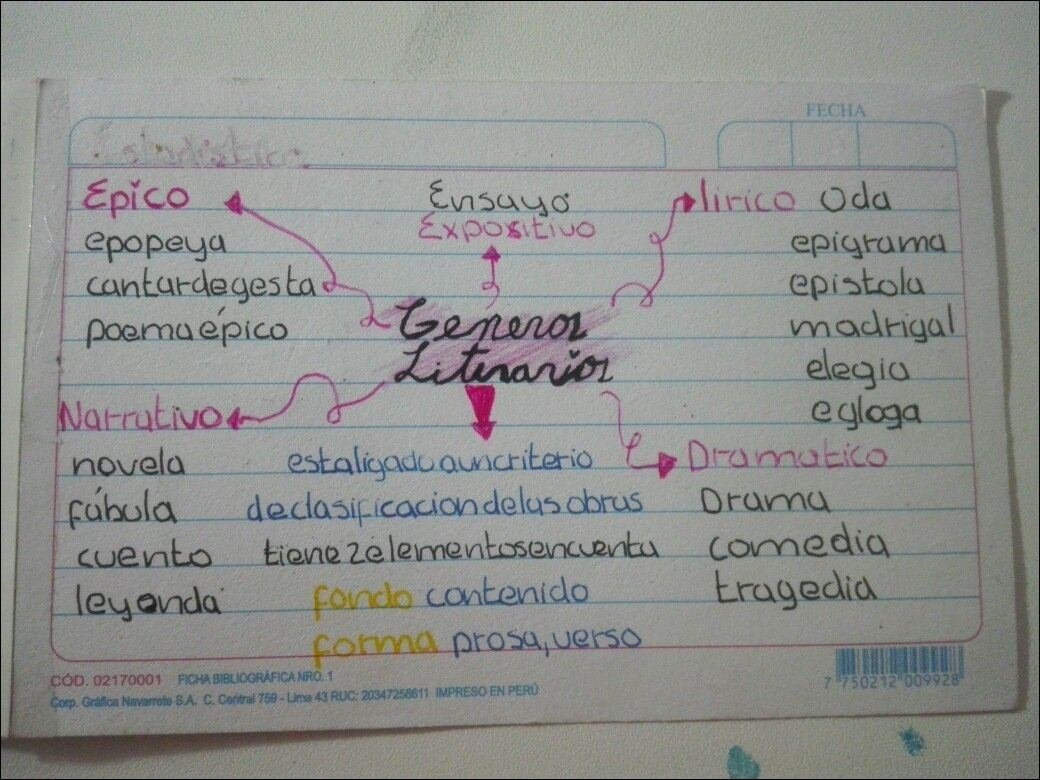 FECHA
Estadistica
Epico
epopeya
cantar de gesta
poema épico
Ensayo
Expositivo
lirico Oda
epigrama
epistola
madrigal
elegia
egloga
Generos
Literarios
Narrativo
novela
fábula
cuento
leyenda
esta ligado a un criterio
de clasificacion de las obras
tiene 2 elementos en cuenta
fondo contenido
forma prosa, verso
Dramatico
Drama
comedia
tragedia
CÓD. 02170001 FICHA BIBLIOGRÁFICA NRO. 1
Corp. Gráfica Navarrete S.A. C. Central 759 - Lima 43 RUC: 20347258611 IMPRESO EN PERÚ
7 750212 009928